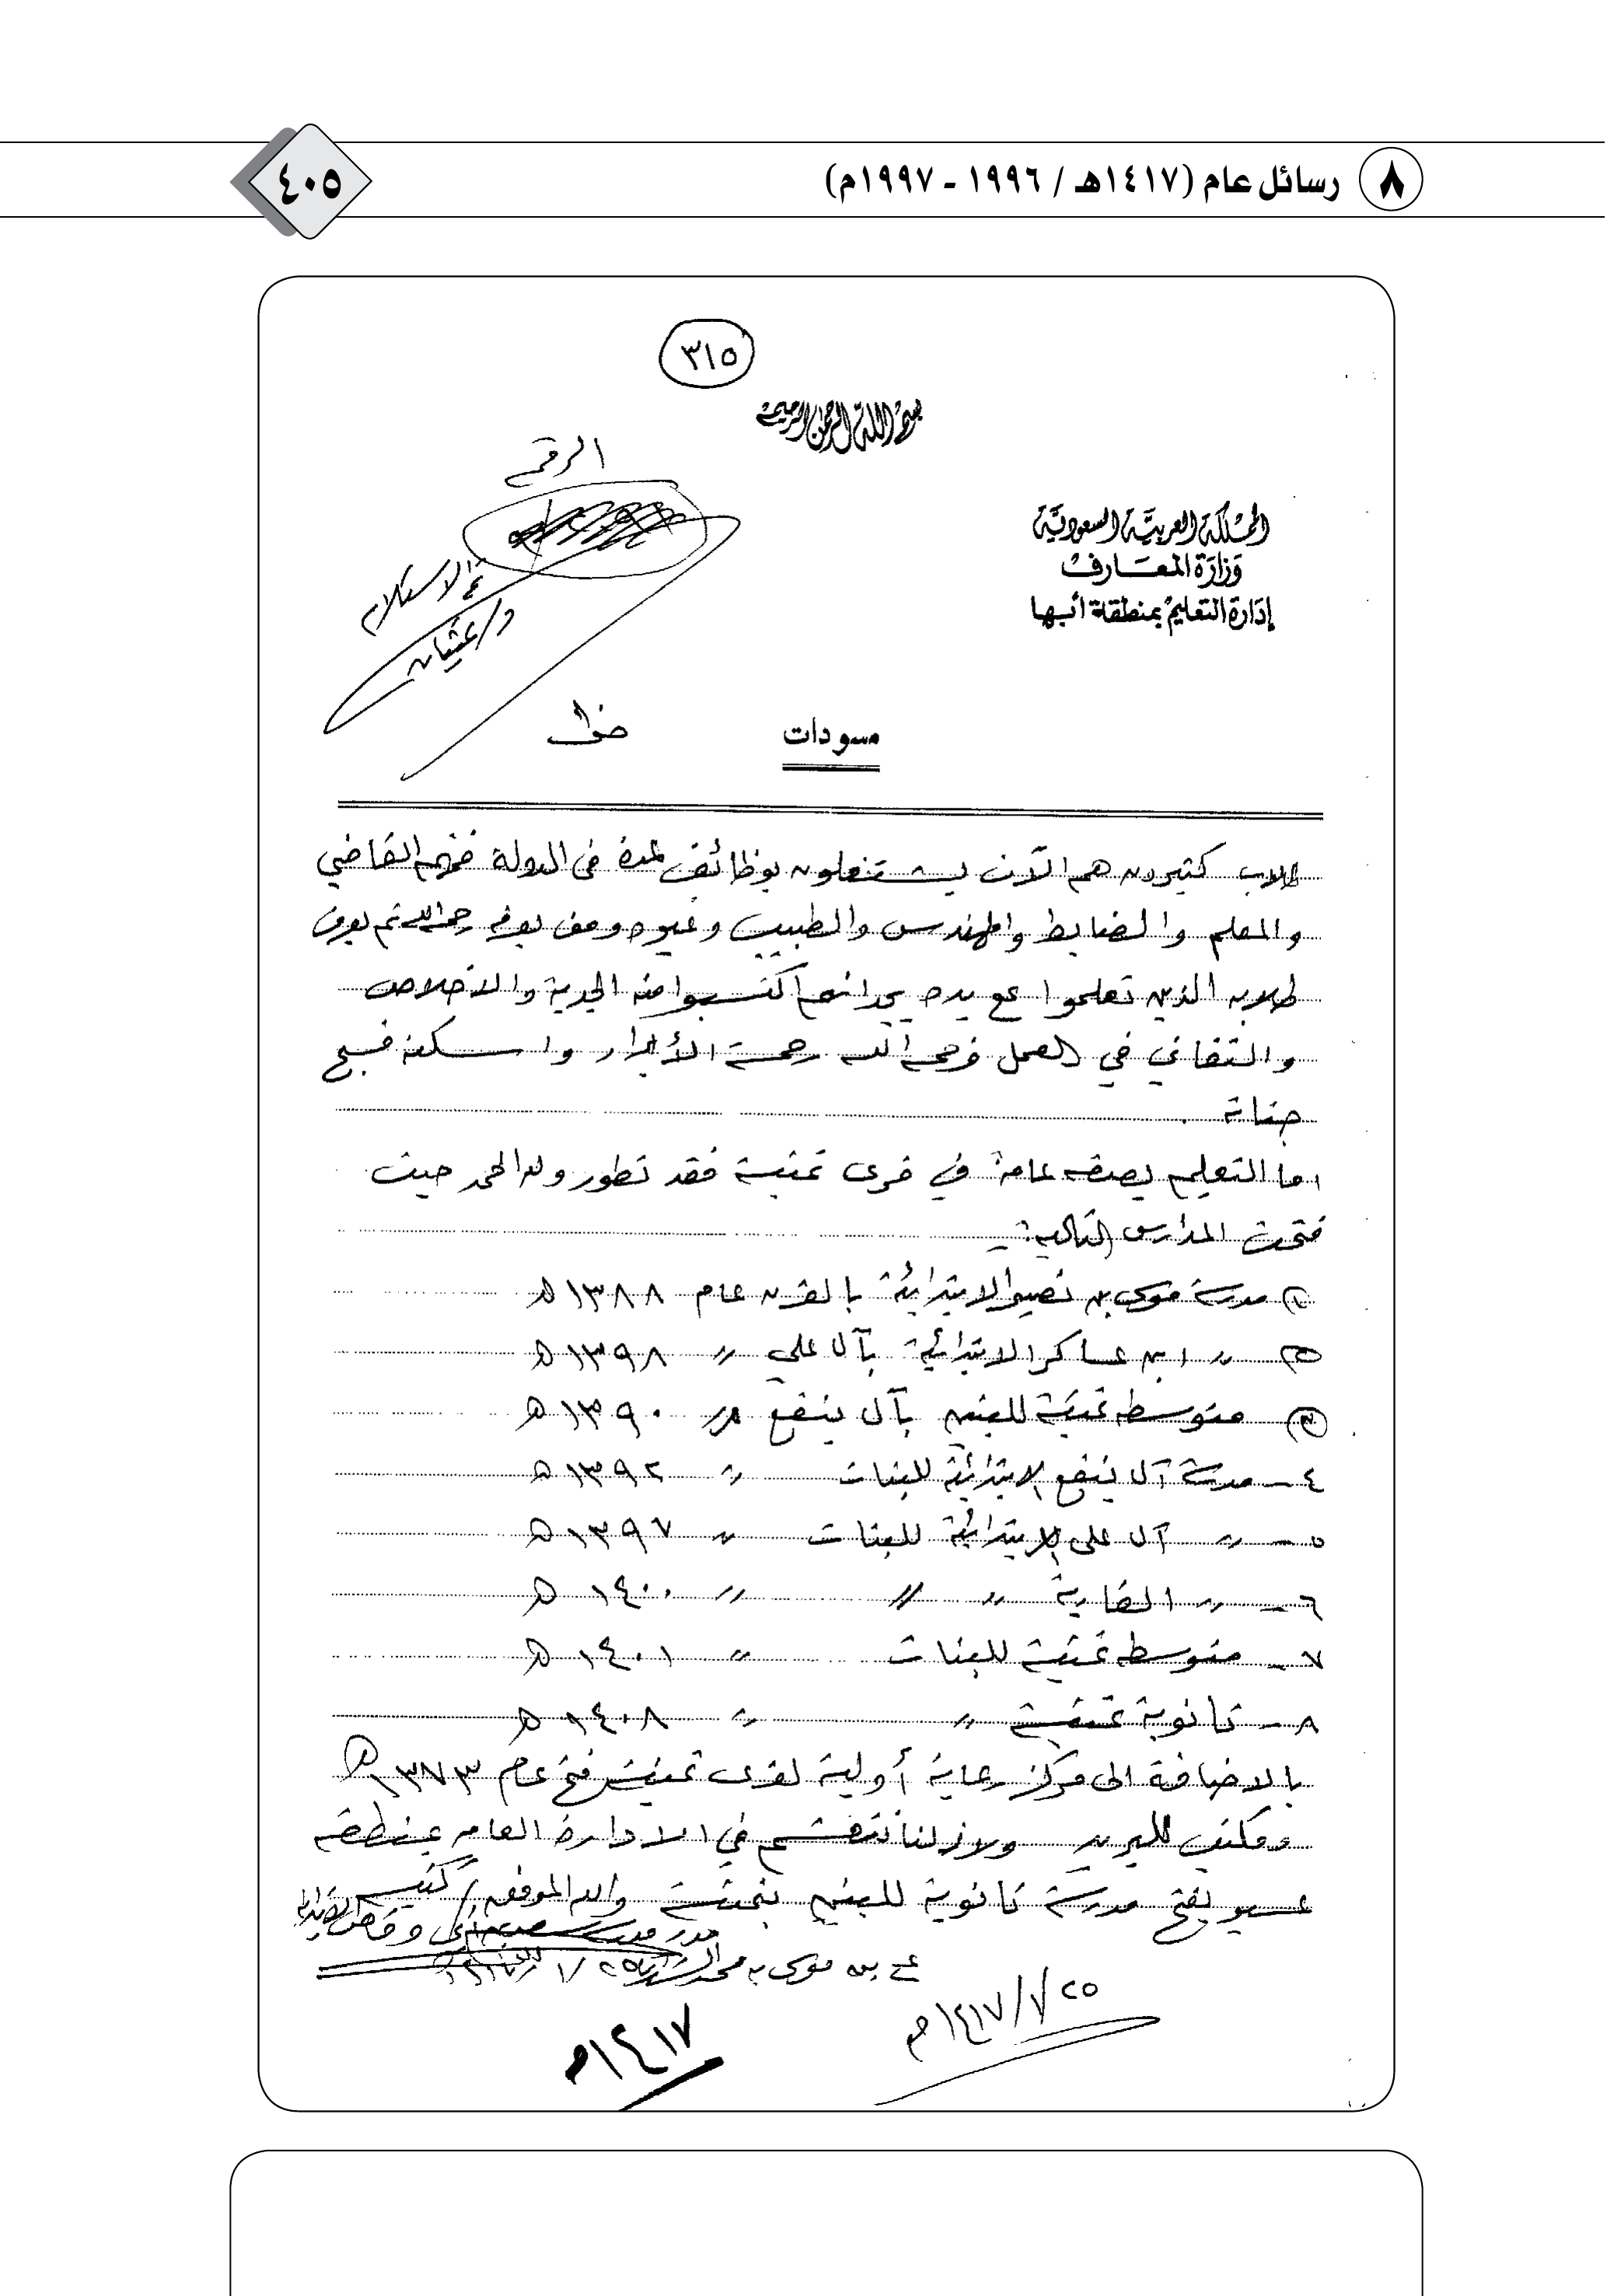 ٨ رسائل عام (١٤١٧هـ / ١٩٩٦ - ١٩٩٧م)
٤٠٥
٣١٥
بسم الله الرحمن الرحيم
الرقم
المملكة العربية السعودية
وزارة المعارف
إدارة التعليم بمنطقة أبها
الاستلام
د/عثمان
مسودات
طلاب كثيرون هم الآن يشتغلون بوظائف عدة في الدولة فمنهم القاضي
والمعلم والضابط والمهندس والطبيب وغيره ومن يعرفه رحمه الله ثم يعرف
طلابه الذين تعلموا على يده يجد انهم اكتسبوا منه الجدية والاخلاص
والتفاني في العمل فرحمه الله رحمة الأبرار واسكنه فسيح
جناته .
اما التعليم بصفه عامة في قرى تمنية فقد تطور ولله الحمد حيث
فتحت المدارس التالية :-
١) مدرسة موسى بن نصير الابتدائية بالقرن عام ١٣٨٨ هـ
٢) " ابن عساكر الابتدائية بآل علي " ١٣٩٨ هـ
٣) متوسطة تمنية للبنين بآل ينفع " ١٣٩٠ هـ
٤ - مدرسة آل ينفع الابتدائية للبنات " ١٣٩٢ هـ
٥ - " آل علي الابتدائية للبنات " ١٣٩٧ هـ
٦ - " " " " ١٤٠٠ هـ
٧ - متوسطة تمنية للبنات " ١٤٠١ هـ
٨ - ثانوية تمنية " " ١٤٠٨ هـ
بالاضافة الى مركز رعاية أولية لقرى تمنية فتح عام ١٣٧٣ هـ
ومكتب للبريد ولازلنا في الادارة العامه بمنطقة
عسير بفتح مدرسة ثانوية للبنين بتمنية والله الموفق / كتبه
مدير مدرسة سعد بن أبي وقاص الابتدائية
علي بن موسى بن محمد
٢٥/٧/١٤١٧هـ
١٤١٧هـ